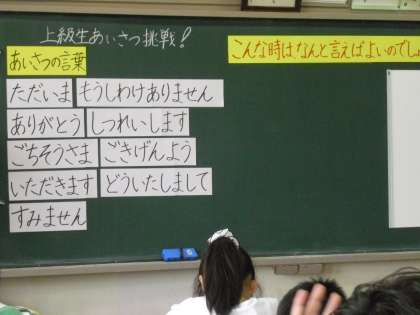 上級生あいさつ挑戦！
こんな時は、なんと言えばよいのでしょ
あいさつの言葉
ただいま もうしわけありません
ありがとう しつれいします
ごちそうさま ごきげんよう
いただきます どういたしまして
すみません